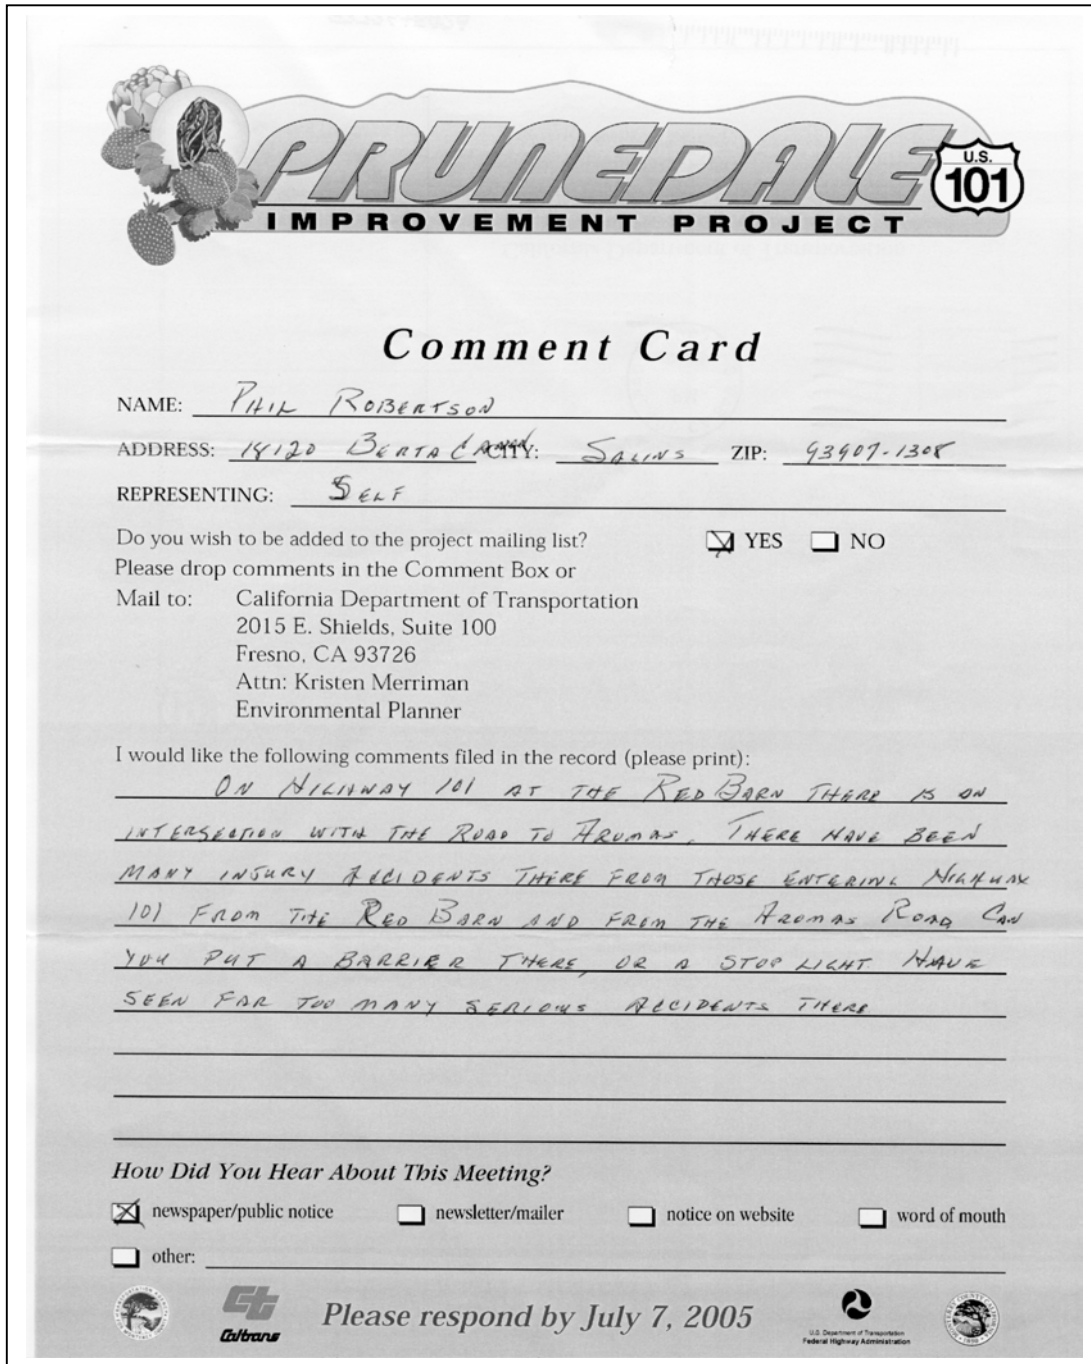 PRUNEDALE
U.S.
101
IMPROVEMENT PROJECT
Comment Card
NAME: PHIL ROBERTSON
ADDRESS: 18120 BERTA CANYN CITY: SALINS ZIP: 93907-1308
REPRESENTING: SELF
Do you wish to be added to the project mailing list? YES NO
Please drop comments in the Comment Box or
Mail to: California Department of Transportation
2015 E. Shields, Suite 100
Fresno, CA 93726
Attn: Kristen Merriman
Environmental Planner
I would like the following comments filed in the record (please print):
ON HIGHWAY 101 AT THE RED BARN THERE IS AN
INTERSECTION WITH THE ROAD TO AROMAS. THERE HAVE BEEN
MANY INJURY ACCIDENTS THERE FROM THOSE ENTERING HIGHWAY
101 FROM THE RED BARN AND FROM THE AROMAS ROAD CAN
YOU PUT A BARRIER THERE, OR A STOP LIGHT HAVE
SEEN FAR TOO MANY SERIOUS ACCIDENTS THERE
How Did You Hear About This Meeting?
newspaper/public notice newsletter/mailer notice on website word of mouth
other:
Caltrans
Please respond by July 7, 2005
U.S. Department of Transportation
Federal Highway Administration